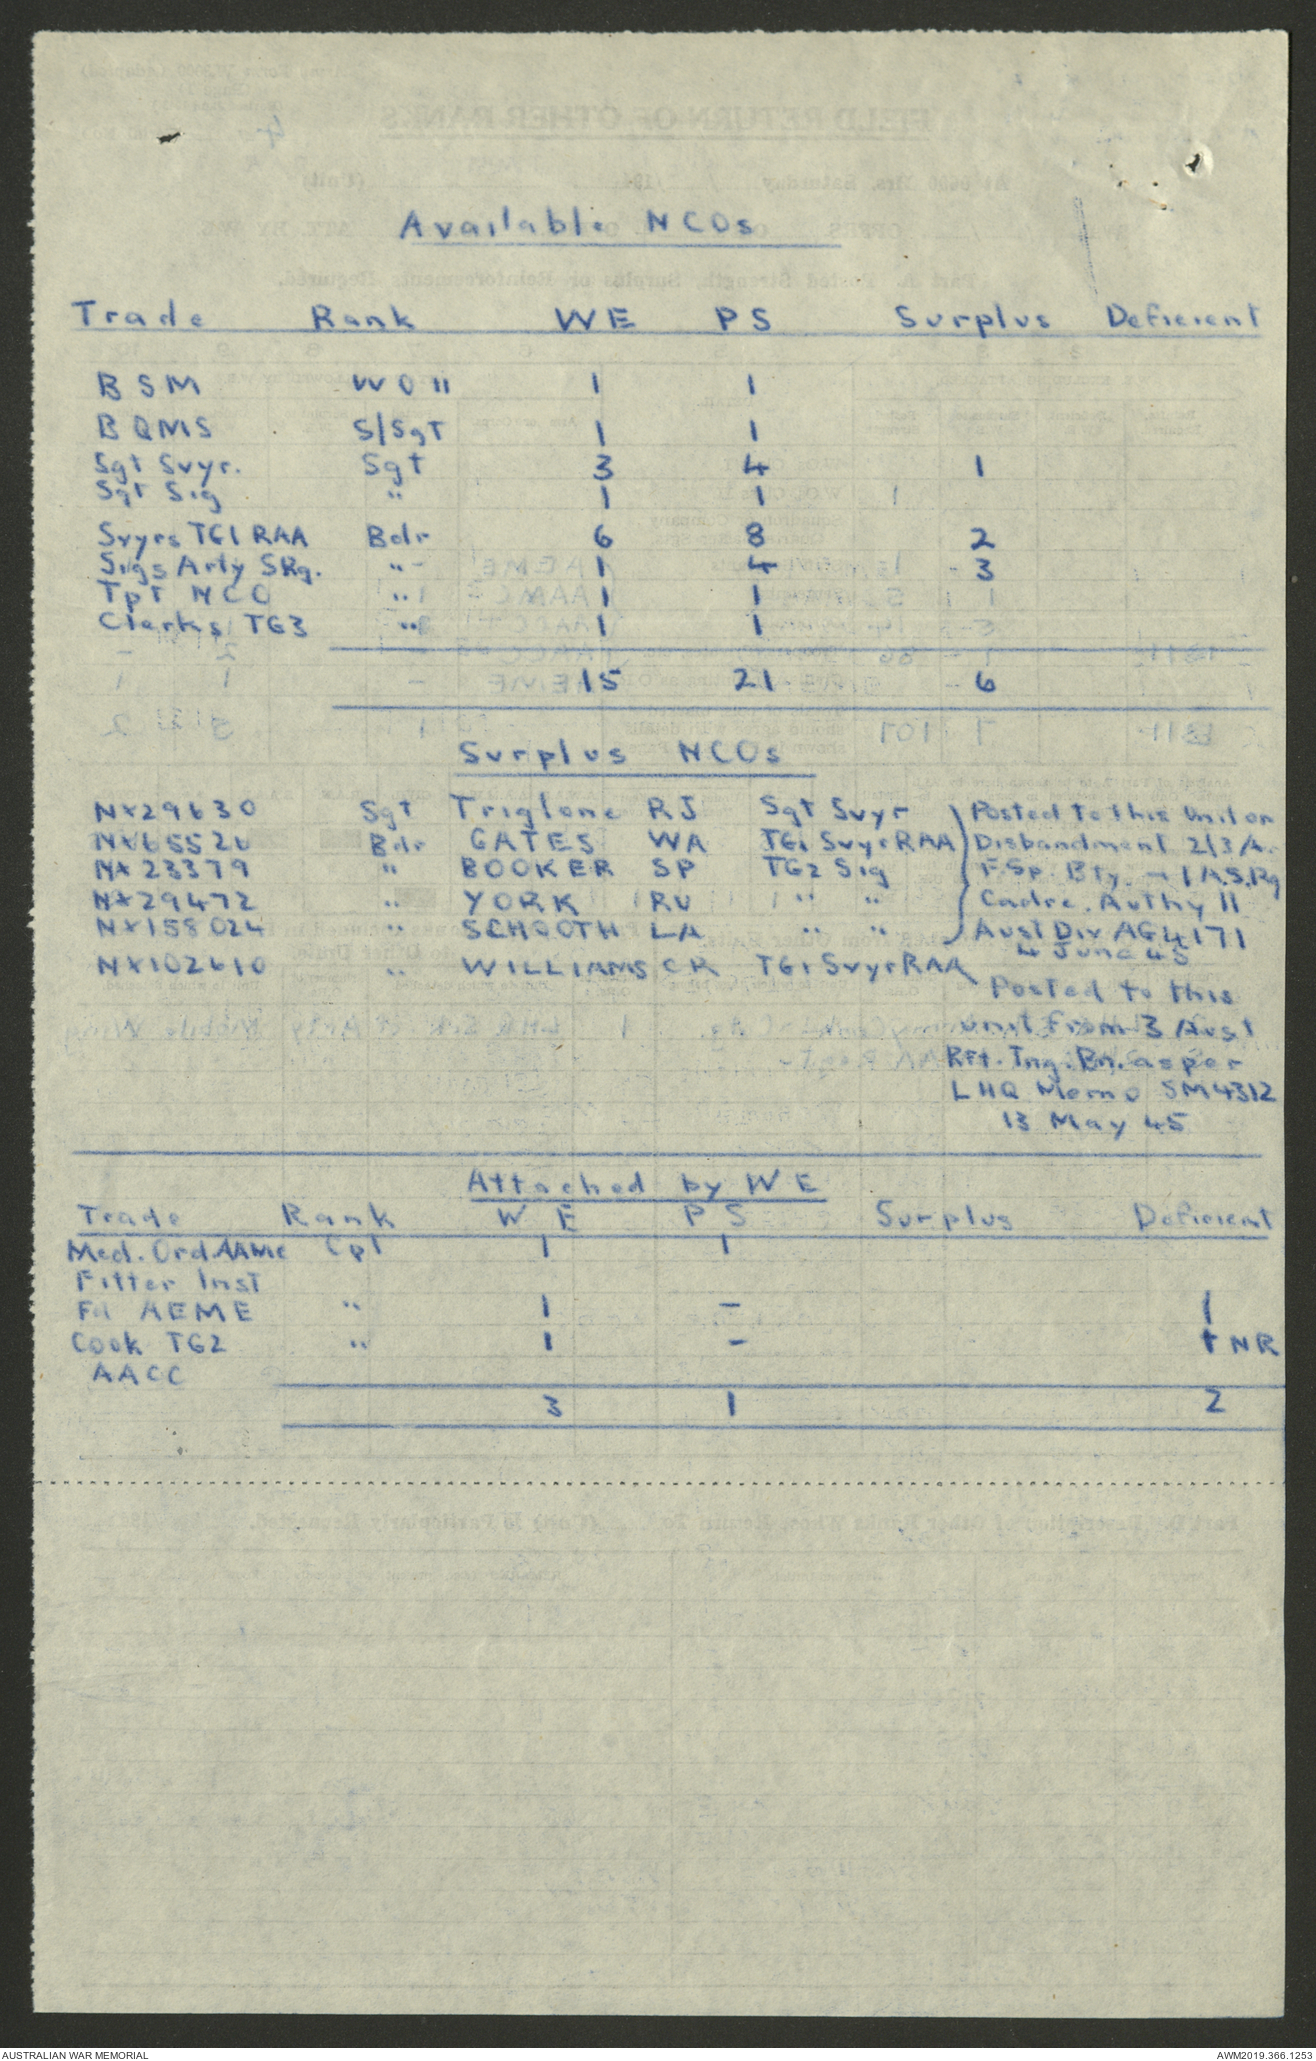 Available NCOs
Trade Rank WE PS Surplus Deficient
BSM WO II 1 1
BQMS S/Sgt 1 1
Sgt Svyr. Sgt 3 4 1
Sgt Sig " 1 1
Svyrs TG1 RAA Bdr 6 8 2
Sigs Arty SRg. " 1 4 3
Tpt NCO " 1 1
Clerks TG3 " 1 1
15 21 6
Surplus NCOs
NX29630 Sgt Triglone RJ Sgt Svyr Posted to this Unit on
NX65526 Bdr GATES WA TG1 SvyrRAA Disbandment 2/3 A.
NX23379 " BOOKER SP TG2 Sig F.Sp. Bty. → 1 A.S.Rg
NX29472 " YORK RV " " Cadre. Authy 11
NX158024 " SCHOOTH LA " " Aust Div AG4171
4 June 45
NX102610 " WILLIAMS CR TG1 SvyrRAA
Posted to this
Unit from 3 Aust
Rft. Tng. Bn. as per
LHQ Memo SM4312
13 May 45
Attached by WE
Trade Rank WE PS Surplus Deficient
Med. Ord. AAMC Cpl 1 1
Fitter Inst
Fd AEME " 1 - 1
Cook TG2 " 1 - 1 NR
AACC
3 1 2
AUSTRALIAN WAR MEMORIAL AWM2019.366.1253